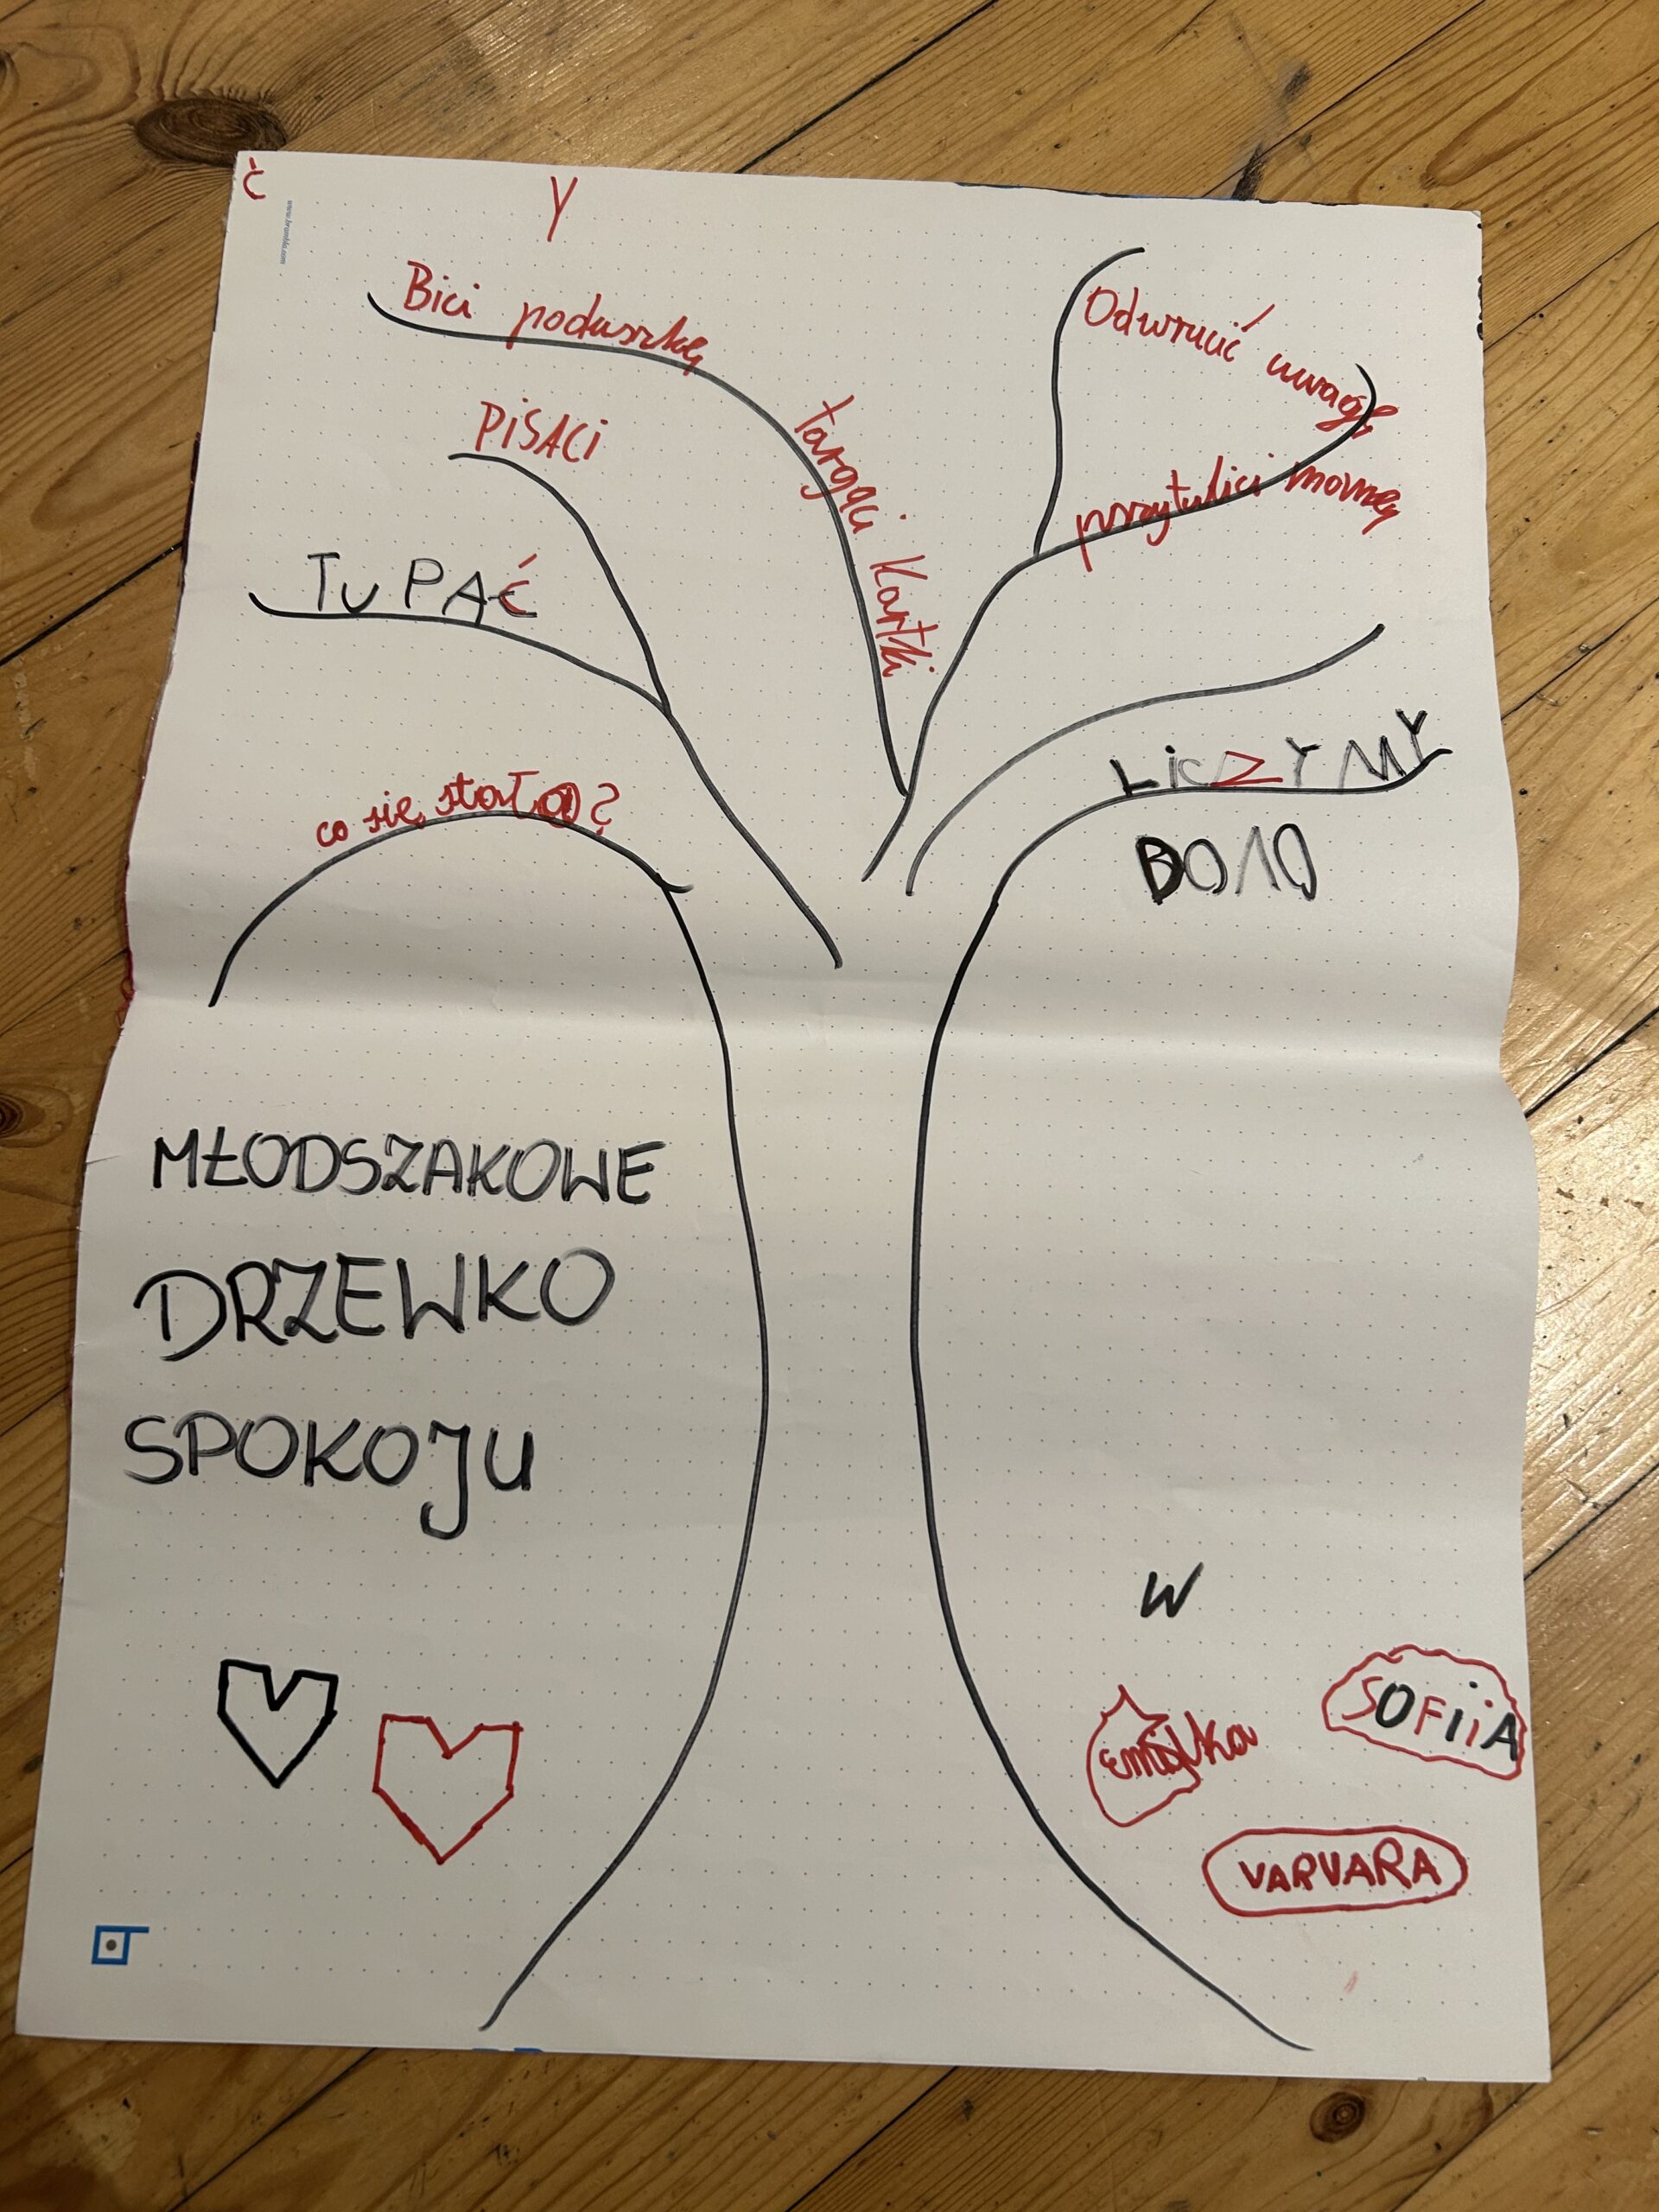 ć
y
Bici poduszkę
Odwrucić uwagę
PiSACi
targaci Kartki
przytulici mamę
TuPAĆ
co się stało?
LiCZYMY
DO 10
MŁODSZAKOWE
DRZEWKO
SPOKOJU
W
SOFiiA
Emilka
VARVARA